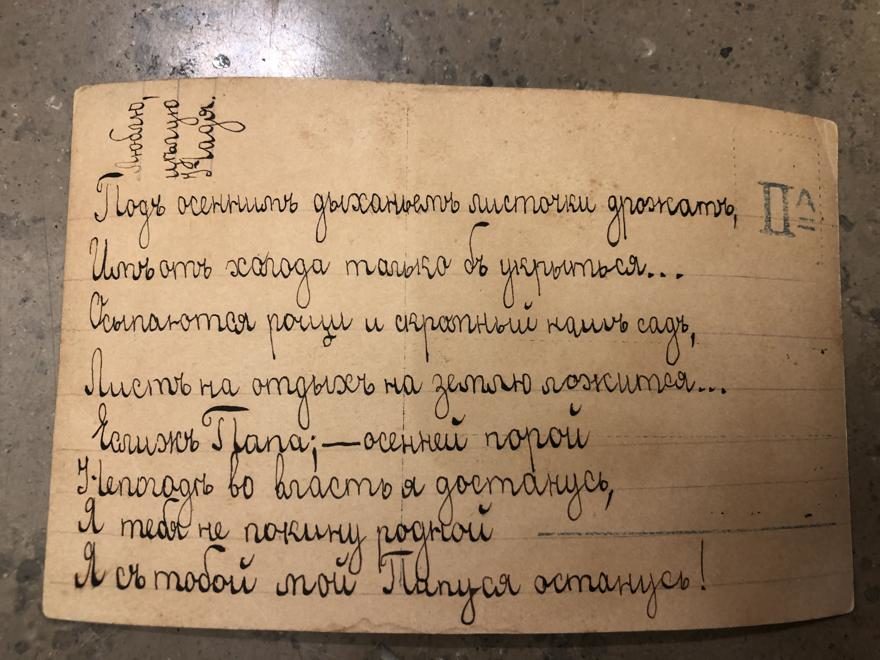 Люблю,
цѣлую
Надя.
Подъ осеннимъ дыханьемъ листочки дрожатъ,
Имъ отъ холода только бъ укрыться...
Осыпаются рощи и скромный нашъ садъ,
Листъ на отдыхъ на землю ложится...
Еслижъ Папа;—осенней порой
Непогодѣ во власть я достанусь,
Я тебя не покину родной
Я съ тобой мой Папуся останусь!
II А